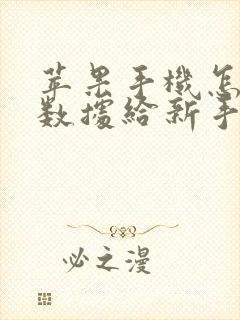 苹果手機怎
数據給新手
必之漫